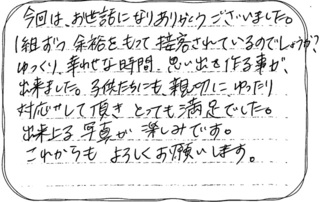 今回は、お世話になりありがとうございました。
1組ずつ余裕をもって接客されているのでしょうか?
ゆっくり、幸わせな時間、思い出を作る事が、
出来ました。子供たちにも、親切に、ゆったり
対応せして頂き とっても満足でした。
出来上る写真が楽しみです。
これからも よろしくお願いします。